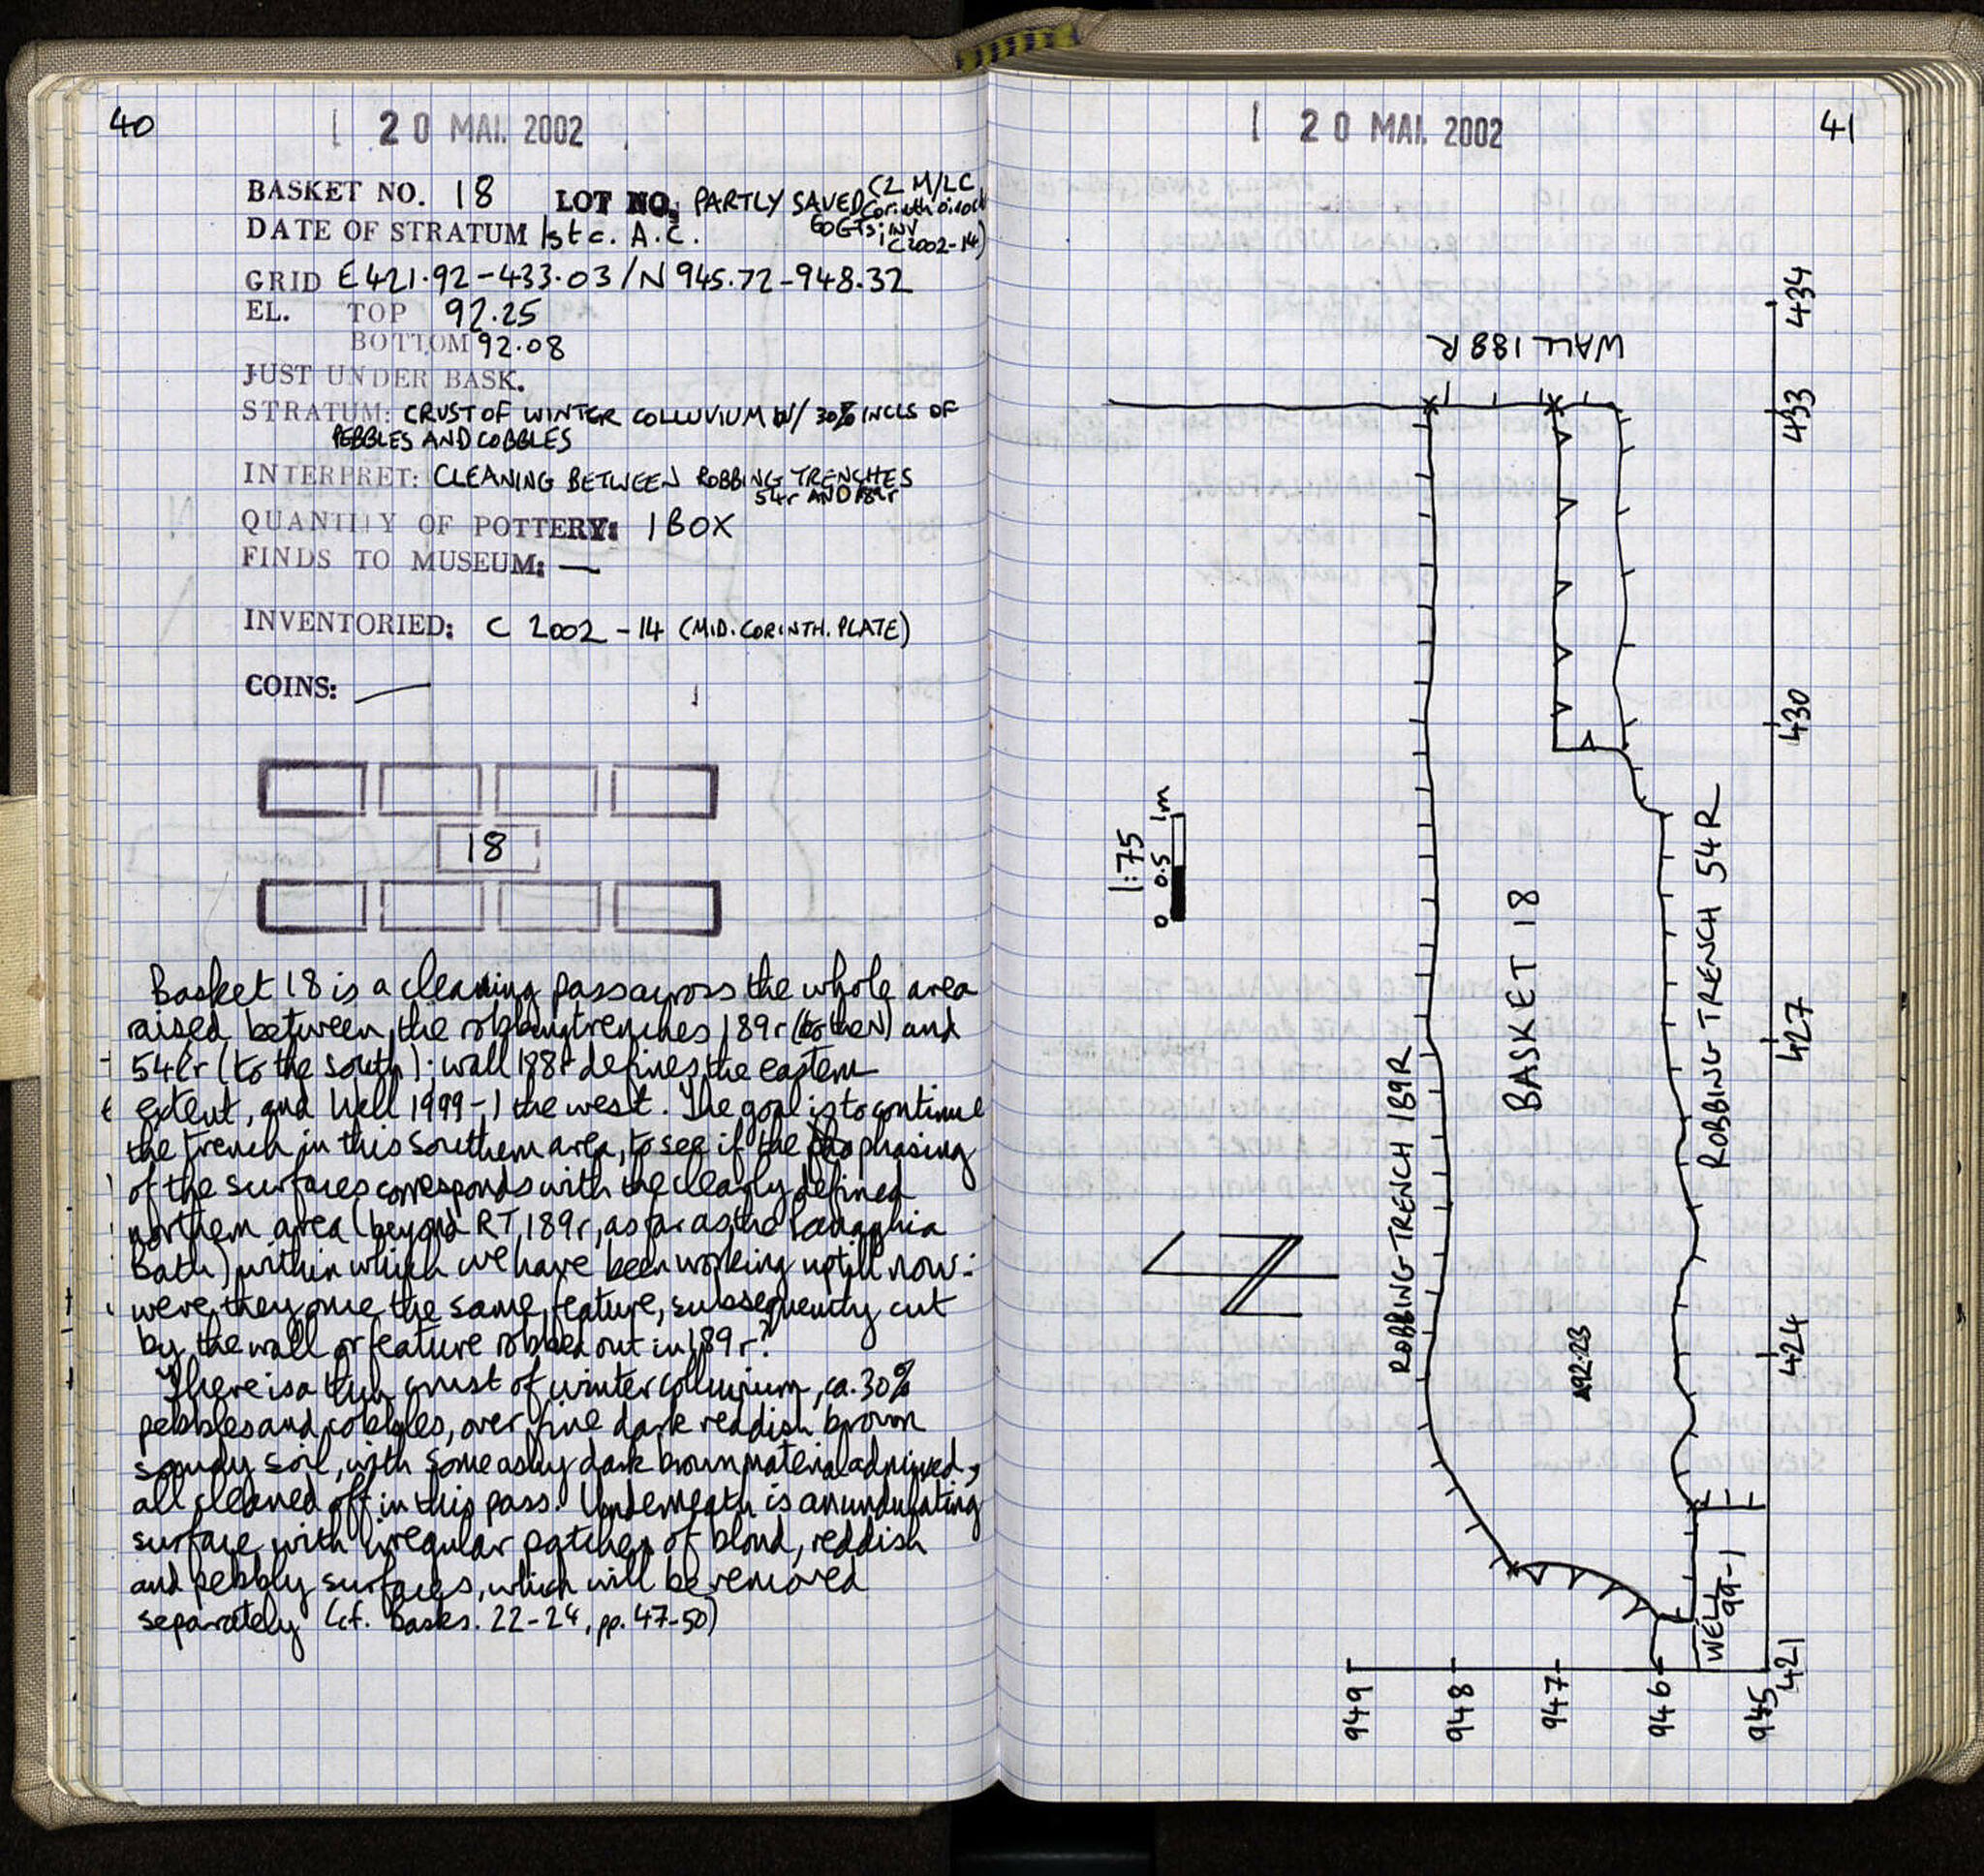 40
1 20 MAI. 2002
BASKET NO. 18 LOT NO. PARTLY SAVED (2 M/LC
Corinth
DATE OF STRATUM 1st c. A.C. EGGTS; INV
C2002-14)
GRID E421.92-433.03/N945.72-948.32
EL. TOP 92.25
BOTTOM 92.08
JUST UNDER BASK.
STRATUM: CRUST OF WINTER COLLUVIUM W/ 30% INCLS OF
PEBBLES AND COBBLES
INTERPRET: CLEANING BETWEEN ROBBING TRENCHES
54r AND 189r
QUANTITY OF POTTERY: 1 BOX
FINDS TO MUSEUM: —
INVENTORIED: C 2002-14 (MID. CORINTH. PLATE)
COINS: —
18
Basket 18 is a cleaning pass across the whole area
raised between the robbing trenches 189r (to the N) and
54r (to the south); wall 188r defines the eastern
extent, and Well 1999-1 the west. The goal is to continue
the trench in this southern area, to see if the phasing
of the surfaces corresponds with the clearly defined
northern area (beyond RT 189r, as far as the Panagghia
Bath) within which we have been working up till now:
were they once the same feature, subsequently cut
by the wall or feature robbed out in 189r?
There is a thin crust of winter colluvium, ca. 30%
pebbles and cobbles, over fine dark reddish brown
sandy soil, with some ashy dark brown material admixed,
all cleaned off in this pass. Underneath is an undulating
surface with irregular patches of blond, reddish
and pebbly surfaces, which will be removed
separately (cf. Basks. 22-24, pp. 47-50)
1 20 MAI. 2002
41
WALL 188R
434
433
430
427
424
421
1:75
0 0.5 1m
BASKET 18
ROBBING TRENCH 54R
ROBBING TRENCH 189R
92.23
WELL
99-1
949
948
947
946
945